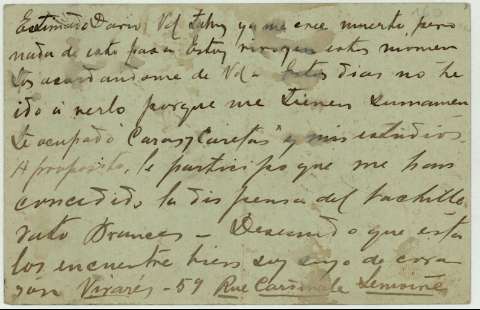 Estimado Dario: Vd. talvez ya me cree muerto, pero
nada de esto pasa. Estoy vivo y en estos momen
tos acordandome de Vd. - Estos dias no he
ido a verlo porque me tienen sumamen
te ocupado "Caras y Caretas" y mis estudios.
A proposito, le participo que me han
concedido la dispensa del bachille
rato Frances - Deseando que estas
los encuentre bien soy suyo de cora
zón Vivarés - 59 Rue Cardinale Lemoine